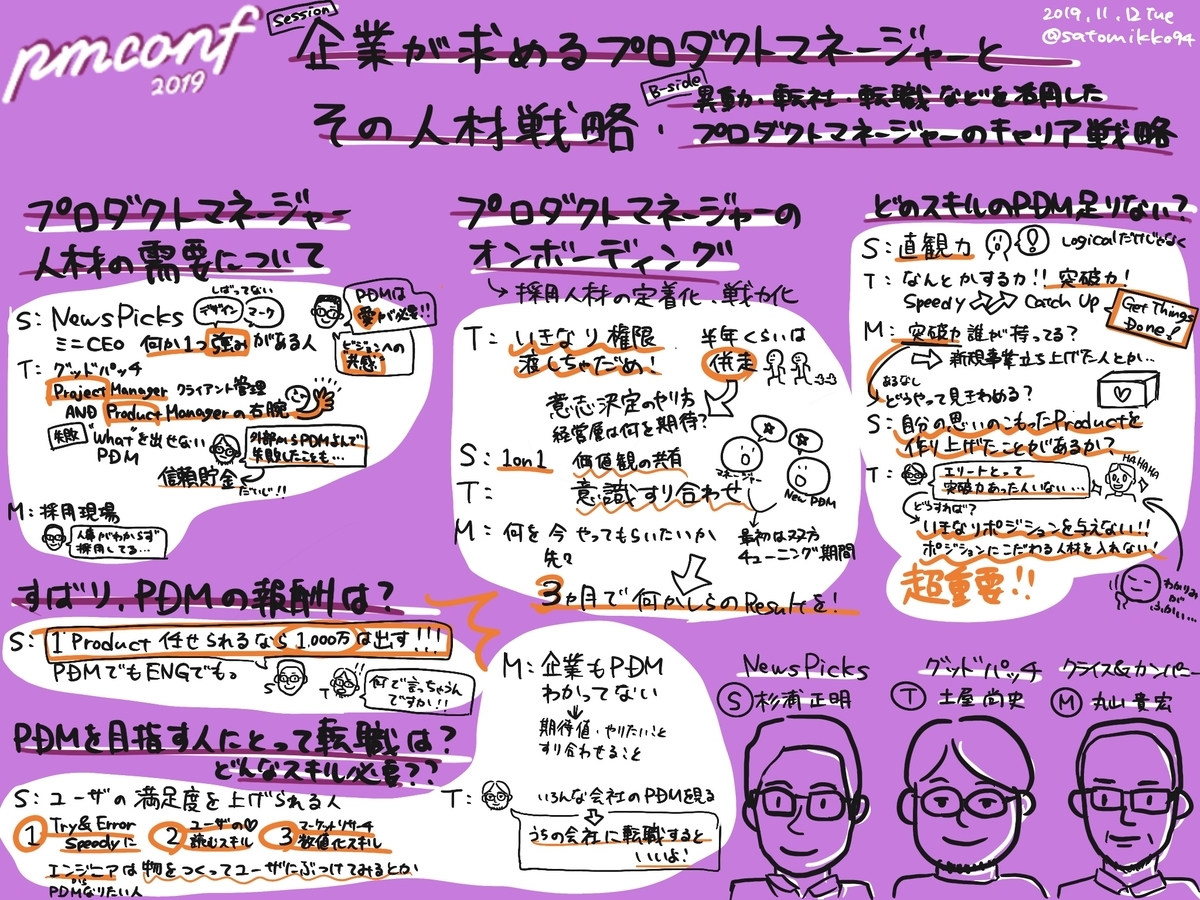 pmconf
2019
Session
企業が求めるプロダクトマネージャーと
その人材戦略・
B-side
異動・転社・転職などを活用した
プロダクトマネージャーのキャリア戦略
2019.11.12 Tue
@satomikko94
プロダクトマネージャー
人材の需要について
S: NewsPicks
しばってない
デザイン
マーク
ミニCEO 何か1つ強みがある人
PDMは
愛が必要!!
ビジョンへの
"共感"
T: グッドパッチ
Project Manager クライアント管理
AND Product Managerの右腕
失敗 "What"を出せない
PDM
外部からPDMよんで
失敗したことも…
信頼貯金
だいじ!!
M: 採用現場
人事がわからず
採用してる…
ずばり、PDMの報酬は?
S: 1 Product 任せられるなら1,000万は出す!!!
PDMでもENGでも。
S
T
何で言っちゃうん
ですか!!
PDMを目指す人にとって転職は?
どんなスキル必要??
S: ユーザの満足度を上げられる人
1 Try & Error
Speedyに
2 ユーザの♡
読むスキル
3 マーケットリサーチ
数値化スキル
エンジニアは物をつくってユーザにぶつけてみるとか
PDMなりたい人
プロダクトマネージャーの
オンボーディング
→採用人材の定着化、戦力化
T: いきなり権限
渡しちゃだめ!
半年くらいは
併走
意志決定のやり方
経営層は何を期待?
S: 1on1 価値観の共有
T: 意識すり合わせ
マネージャー
New PDM
最初はススメ方
チューニング期間
M: 何を今やってもらいたいか
先々
3ヵ月で何かしらのResultを!
M: 企業もPDM
わかってない
期待値・やりたいこと
すり合わせること
T: いろんな会社のPDMを見る
うちの会社に転職すると
いいよ!
どのスキルのPDM足りない?
S: 直観力
Logicalだけじゃなく
T: なんとかする力!! 突破力!
Speedy Catch Up
Get Things
Done!
M: 突破力 誰が持ってる?
⇒新規事業立ち上げた人とか…
あるなし
どうやって見きわめる?
S: 自分の思いのこもったProductを
作り上げたことがあるか?
T: エリートとって
突破力あった人いない…
HAHAHA
どうすれば?
いきなりポジションを与えない!!
ポジションにこだわる人材を入れない!
超重要!!
わかりみ
が
ふかい…
NewsPicks
S 杉浦正明
グッドパッチ
T 土屋尚史
クライス&カンパニー
M 丸山貴宏